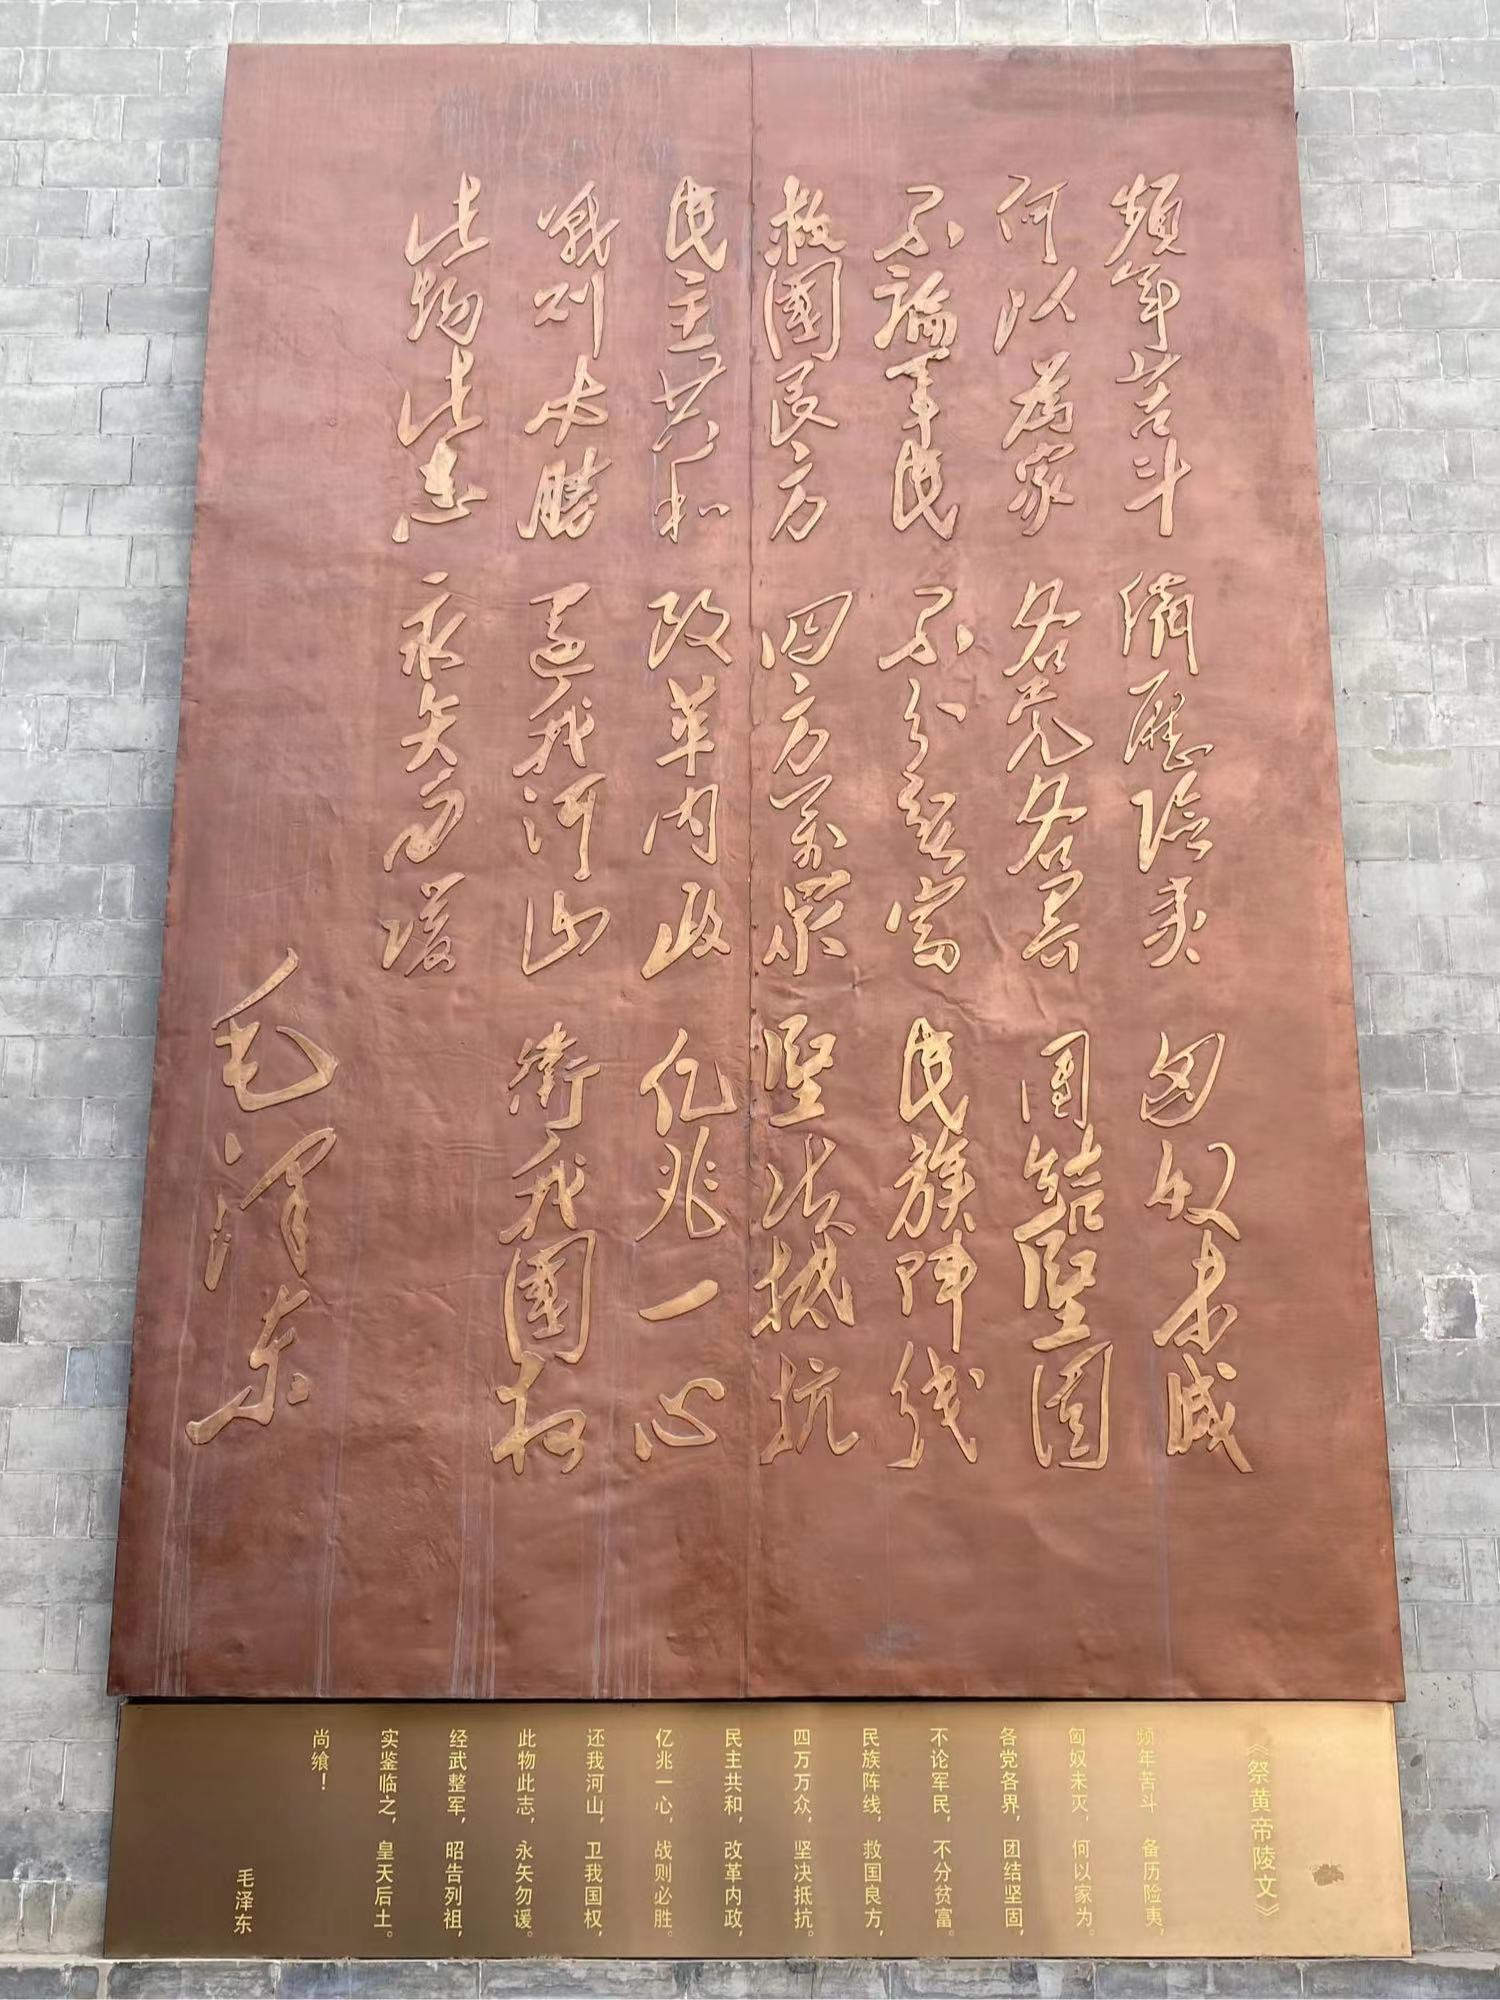 頻年苦斗 備歷險夷 匈奴未滅
何以為家 各党各界 团結堅固
不論軍民 不分貧富 民族陣线
救國良方 四万萬眾 堅决抵抗
民主共和 改革内政 亿兆一心
戰则必勝 還我河山 衛我國权
此物此志 永矢勿諼
毛澤东
《祭黄帝陵文》
频年苦斗 备历险夷，
匈奴未灭，何以家为。
各党各界，团结坚固，
不论军民，不分贫富。
民族阵线，救国良方，
四万万众，坚决抵抗。
民主共和，改革内政，
亿兆一心，战则必胜。
还我河山，卫我国权，
此物此志，永矢勿谖。
经武整军，昭告列祖，
实鉴临之，皇天后土。
尚飨！
毛泽东